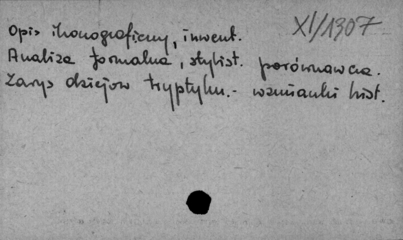 XI/1307
Opis ikonograficzny, inwent.
Analiza formalna, stylist. porównawcza.
Zarys dziejów tryptyku. - wzmianki hist.